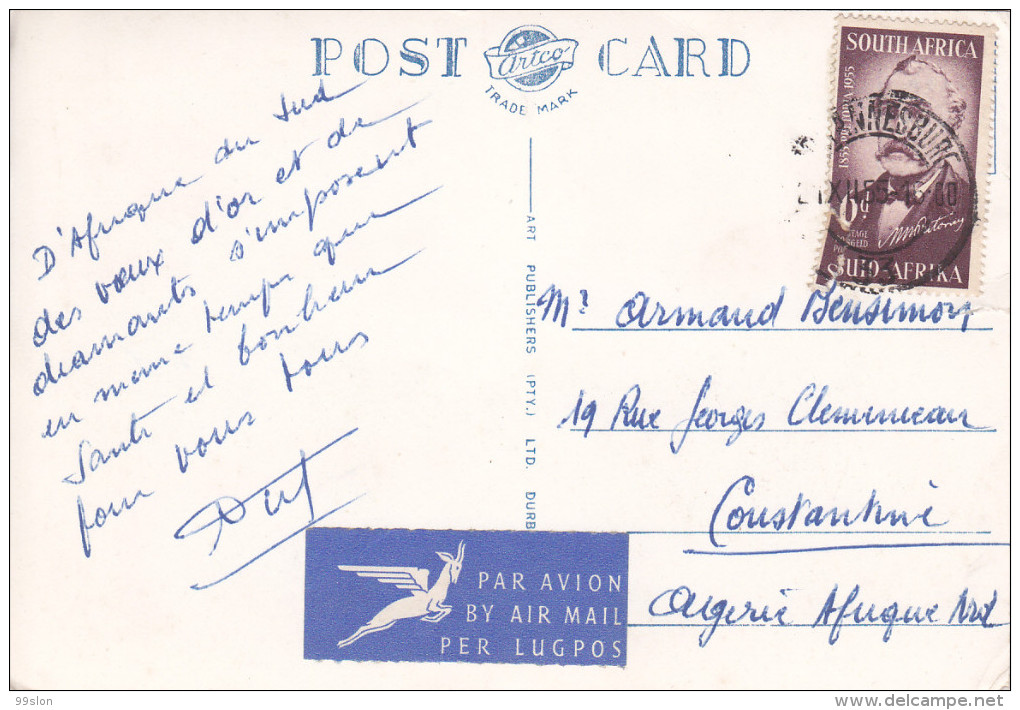 POST CARD
Artco
TRADE MARK
D'Afrique du Sud
des vœux d'or et de
diamants s'imposent
en meme temps que
Santé et bonheur
pour vous tous
ART PUBLISHERS (PTY.) LTD. DURB
SOUTH AFRICA
1855 PRETORIA 1955
6d
SUID-AFRIKA
NNESBURG
XII 55
Mr Armand Bensimon
19 Rue Georges Clemenceau
Constantine
Algerie Afrique Nord
PAR AVION
BY AIR MAIL
PER LUGPOS
99slon
www.delcampe.net